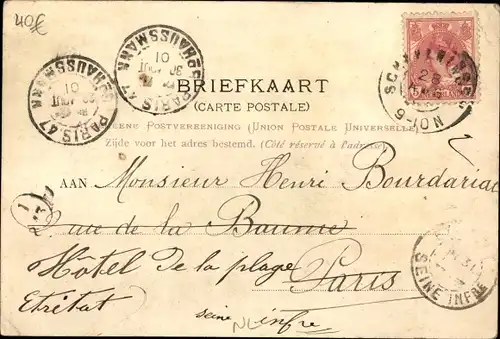 40€
PARIS 47
R. CHAUSSMANN
01
PARIS 47
R. CHAUSSMANN
01
30 AOUT
SCHEVENINGEN
28
9-10N
BRIEFKAART
(CARTE POSTALE)
EENE POSTVEREENIGING (UNION POSTALE UNIVERSELLE)
Zijde voor het adres bestemd. (Côté réservé à l'adresse)
AAN Monsieur Henri Bourdariat
2 rue de la Baume
Hôtel de la plage Paris
Etretat
seine infre
NL
SEINE INFRE